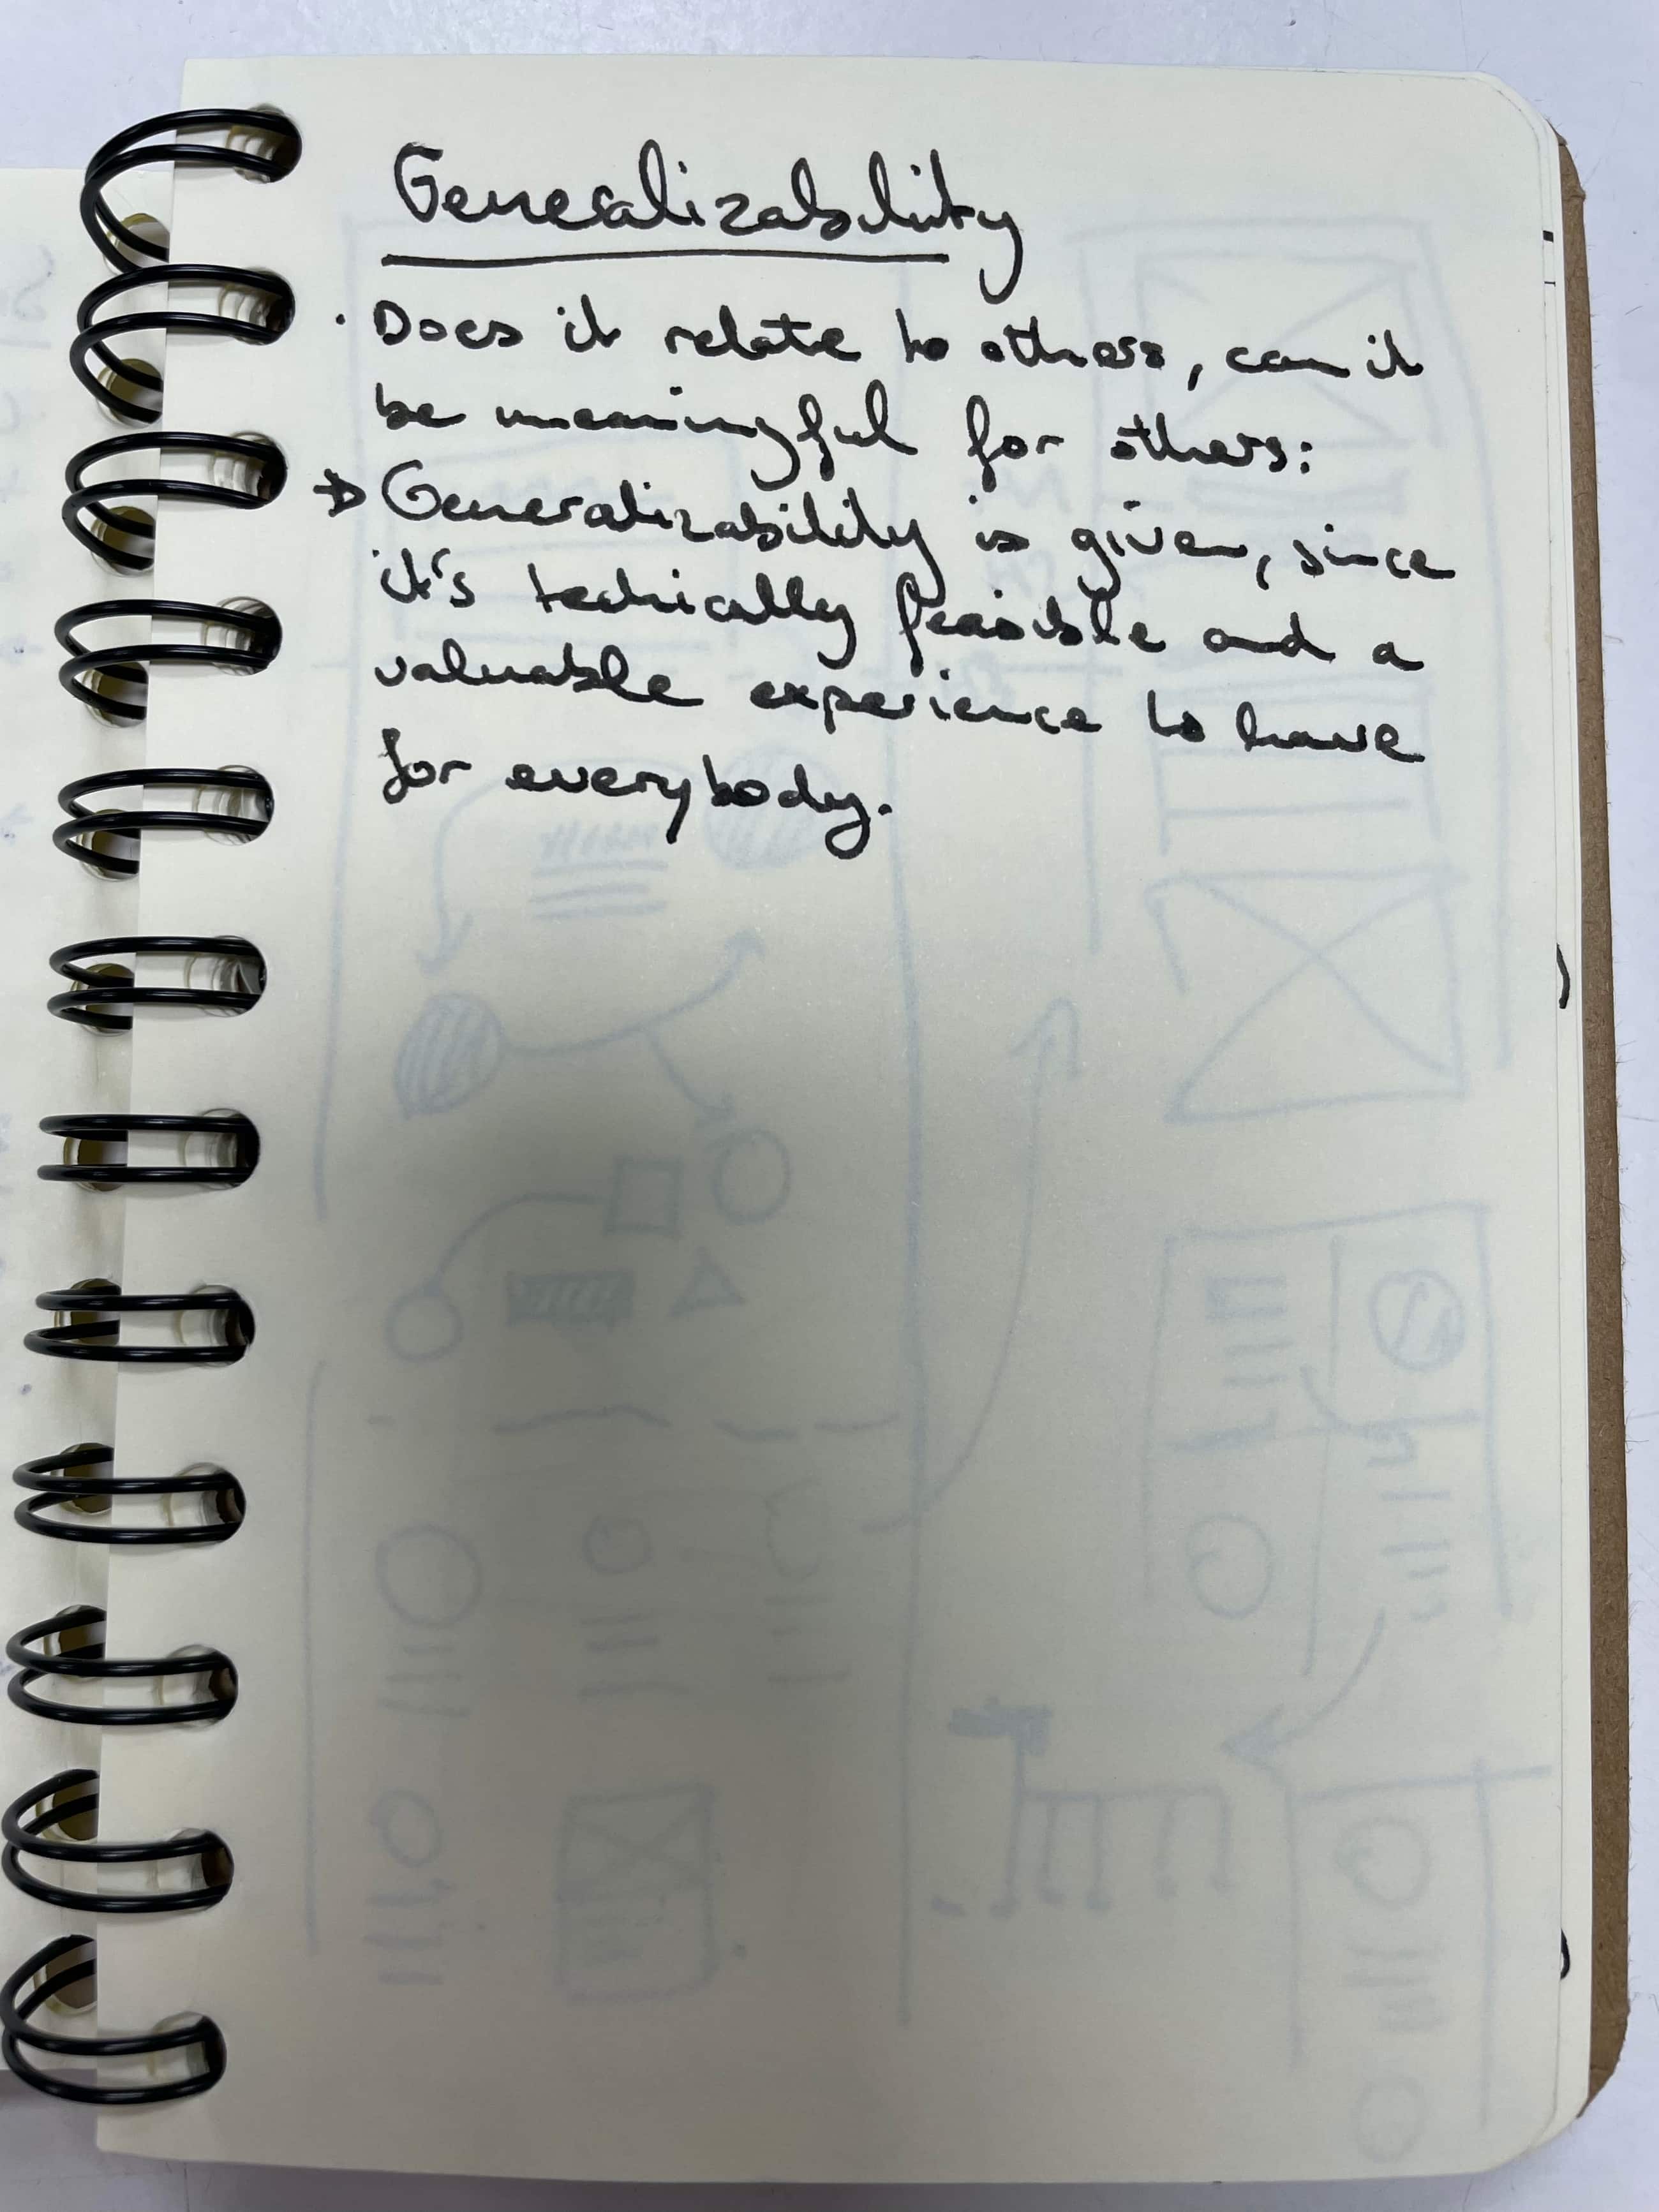 Generalizability
· Does it relate to others, can it
be meaningful for others:
→ Generalizability is given, since
it's techically feasible and a
valuable experience to have
for everybody.